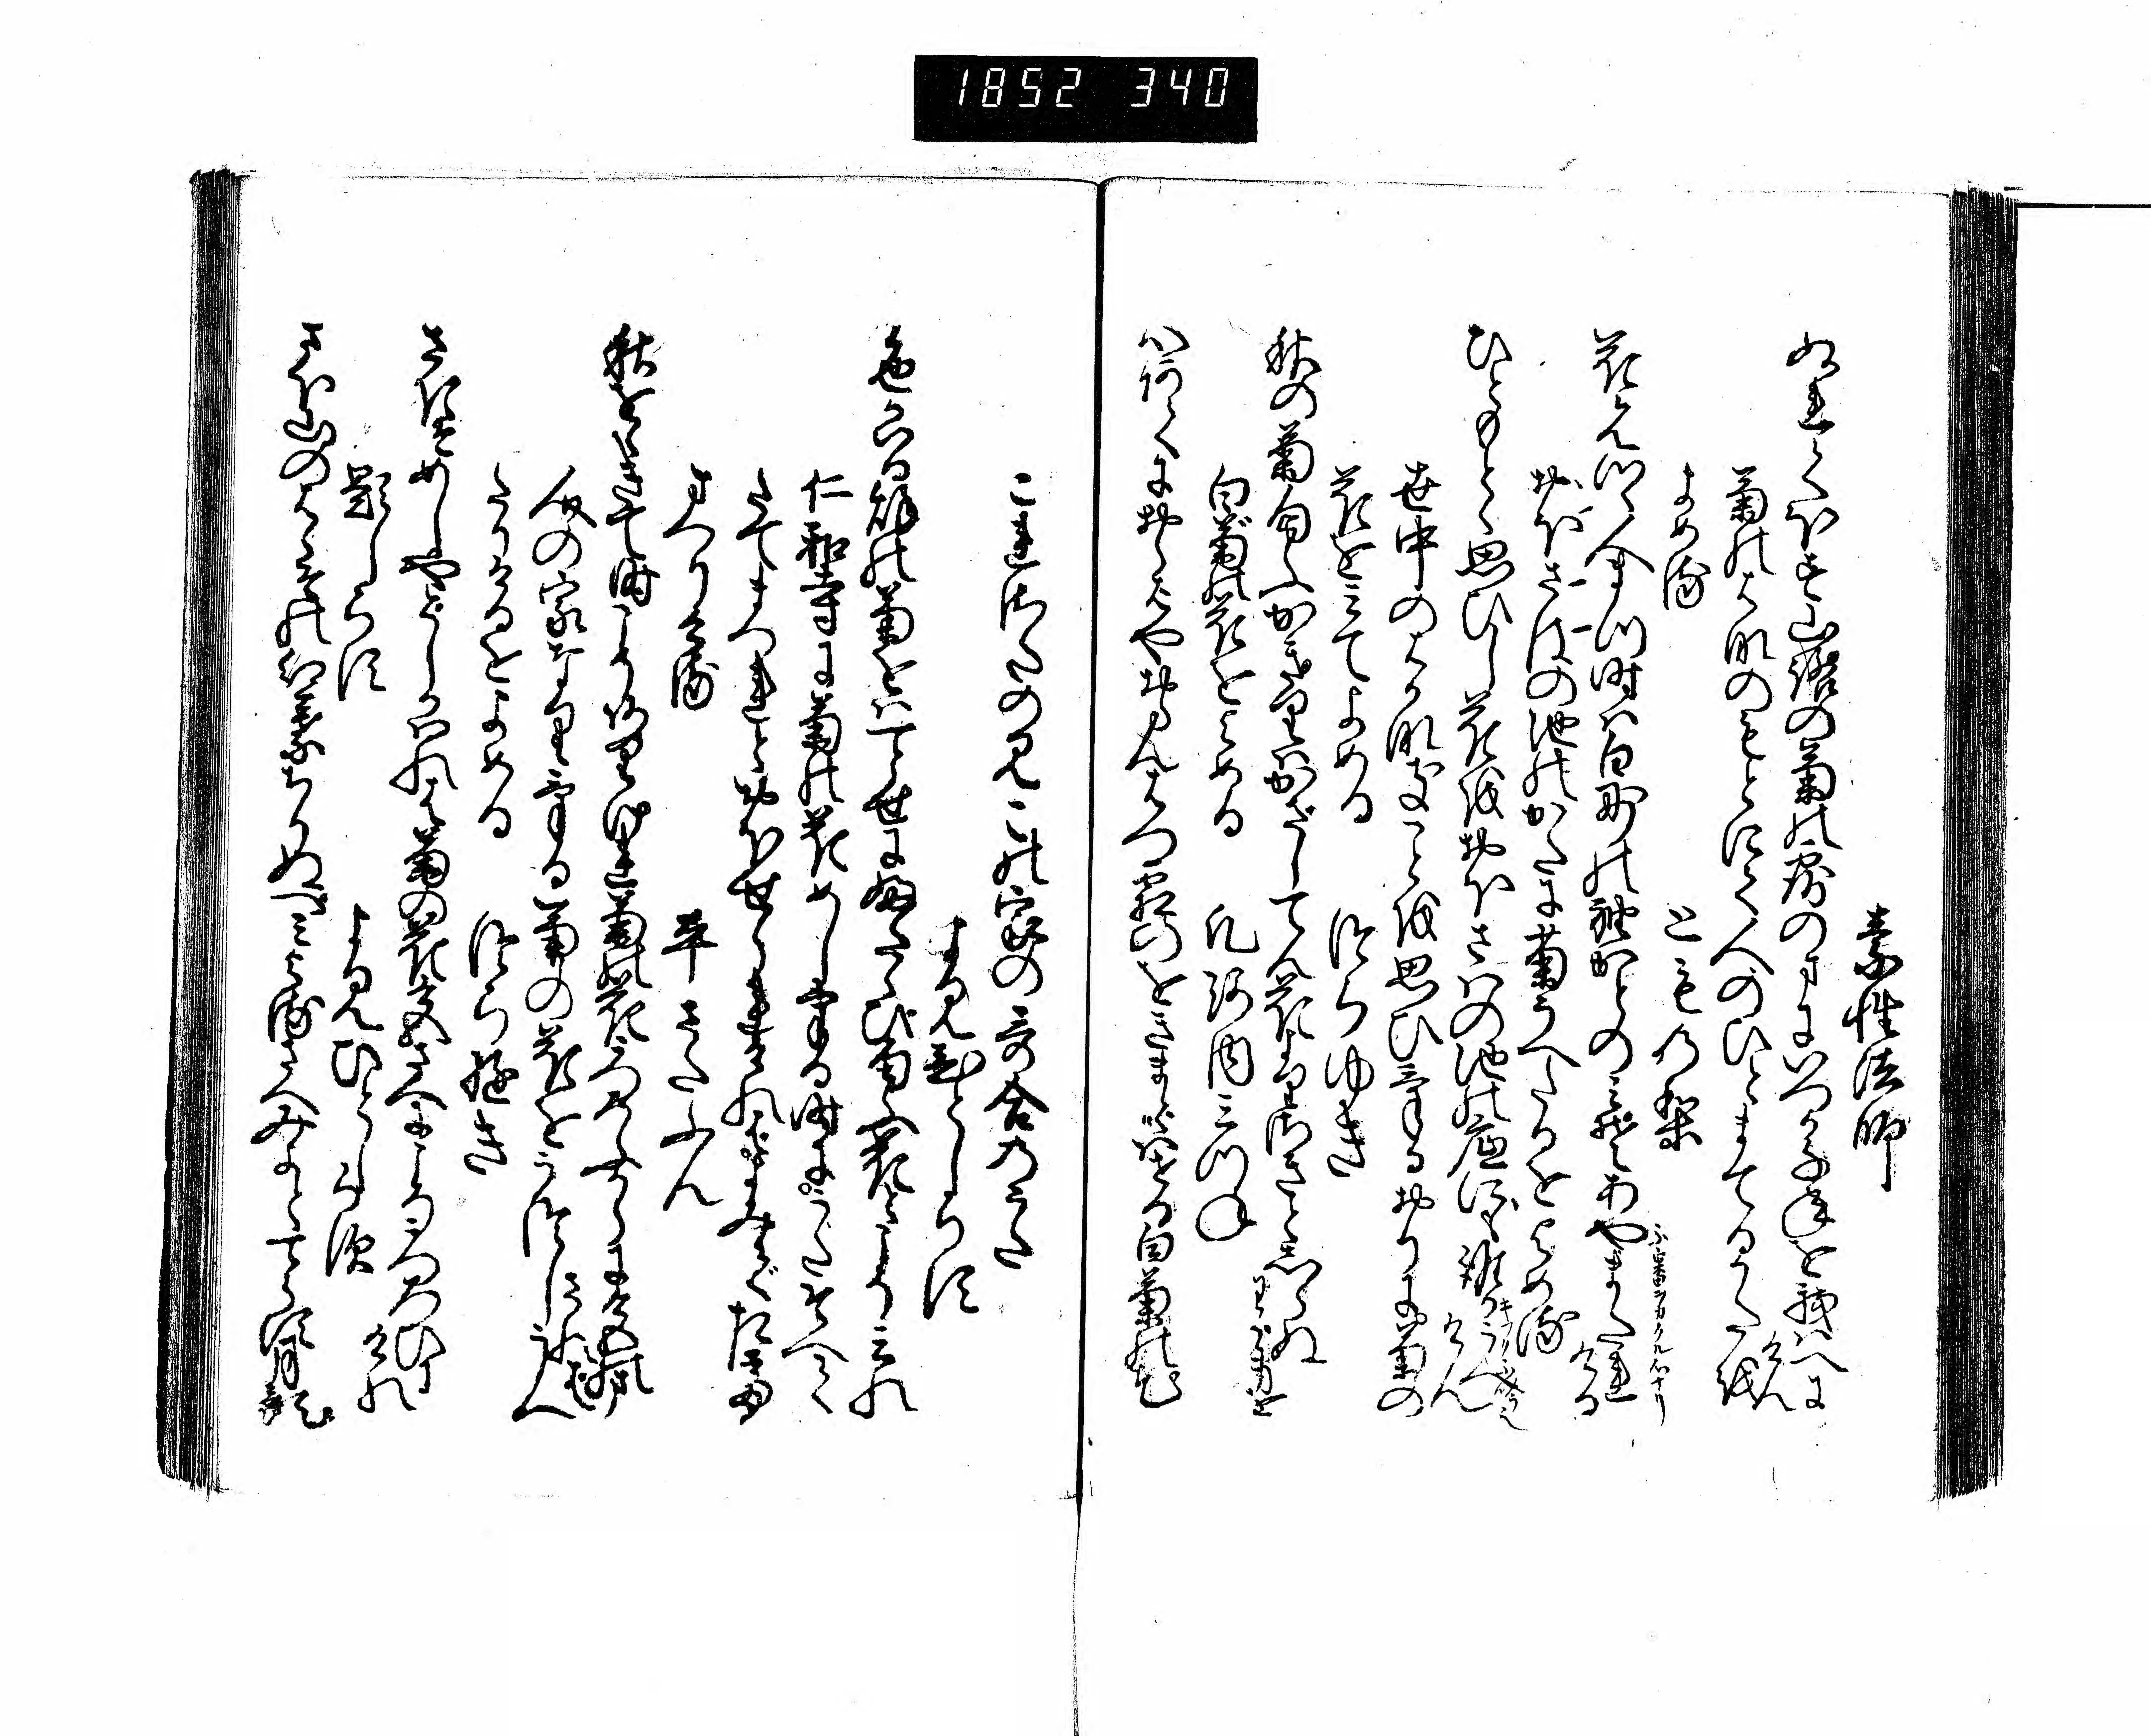 1852 340
素性法師
ぬれてほす山路の菊の露のまにいつか千年を我はへに
けん
菊の花のもとにて人のひとまてるかたを
よめる
とものり
花見つゝ人まつ時は白妙の袖かとのみぞあやまたれ
ける
おほさはの池のかたに菊うへたるをよめる
ひともとゝ思ひし花をおほさはの池の底にも誰かうへ
けん
世中のはかなきことを思ひける おりに菊の
花をみてよめる
つらゆき
秋の菊匂ふかぎりはかざしてん花よりさきとしらぬ
わが身を
白菊の花をよめる
凡河内みつね
心あてにおらばやおらんはつ霜のをきまどはせる白菊の花
これさたのみこの家の哥合のうた
よみ人しらす
色かはる秋の菊をば一とせにふたゝび匂ふ花とこそみれ
仁和寺に菊の花めしける時にうたそへて
たてまつれとおほせられければよみて
たてまつりける
平さだふん
秋をゝきて時こそ有けれ菊の花うつろふからに色の
まされば
人の家なりける菊の花をうつしうへ
たりけるをよめる
つらゆき
さきそめしやどしかはれば菊の花色さへにこそうつろひに
けれ
題しらす
よみ人しらす
さほ山のはゝその紅葉ちりぬべみよるさへみよとてらす月影